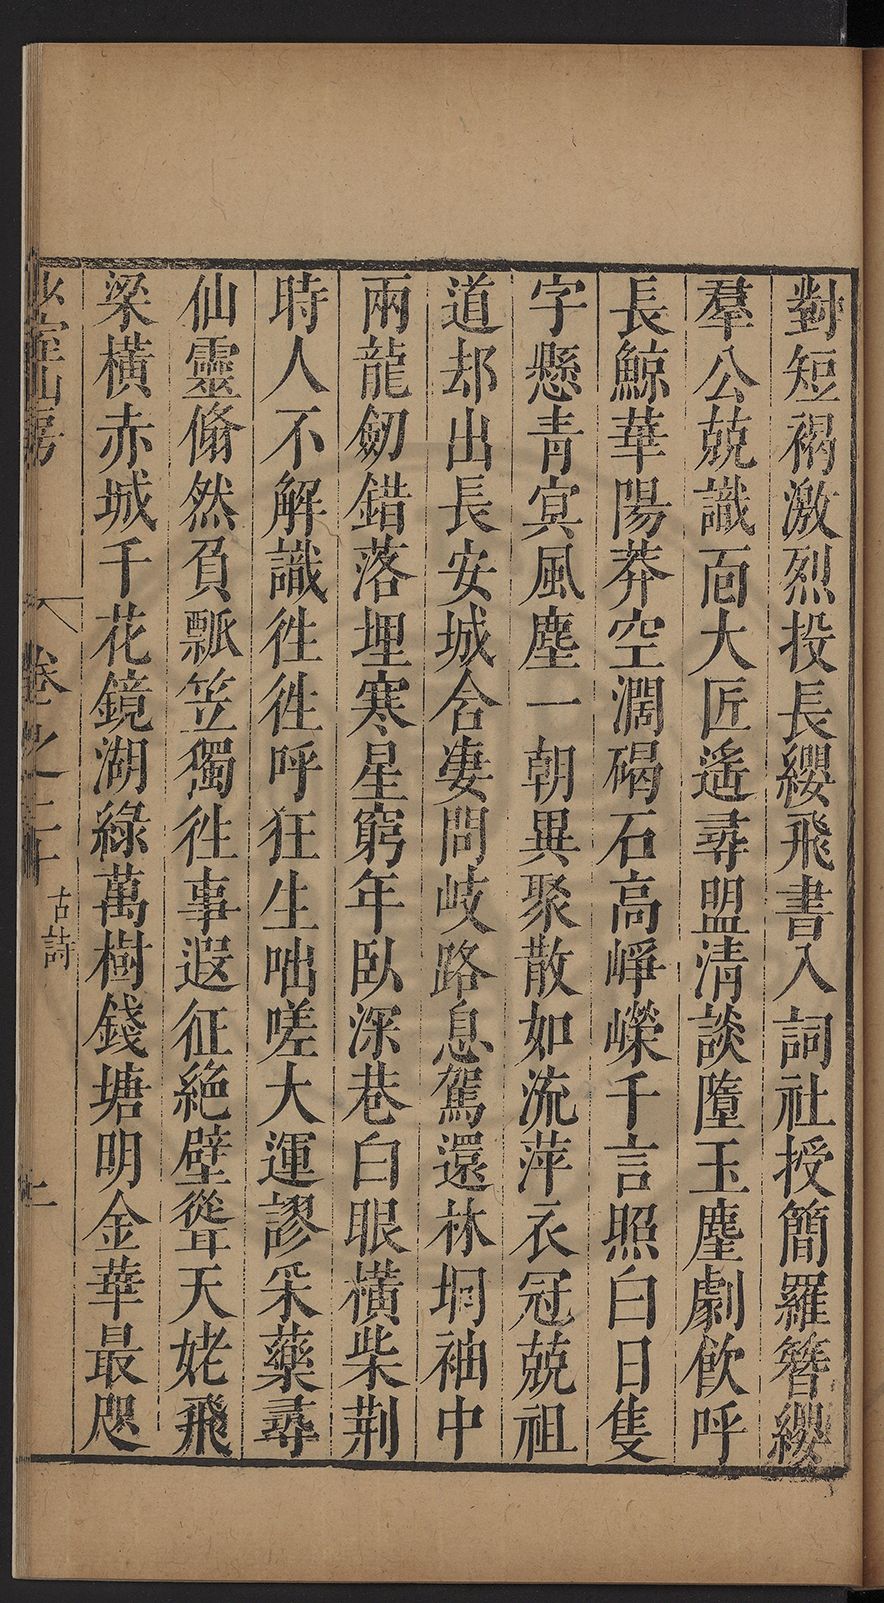 對短褐激烈投長纓飛書入詞社授簡羅簪纓
羣公兢識靣大匠遙尋盟清談墮玉麈劇飲呼
長鯨華陽莽空濶碣石高崢嶸千言照白日隻
字懸青冥風塵一朝異聚散如流萍衣冠兢祖
道却出長安城含凄問岐路息駕還林坰袖中
兩龍劒錯落埋寒星窮年臥深巷白眼橫柴荆
時人不解識徃徃呼狂生咄嗟大運謬采藥尋
仙靈翛然負瓢笠獨徃事遐征絶壁聳天姥飛
梁橫赤城千花鏡湖綠萬樹錢塘明金華最咫
山房
卷之二十 古詩